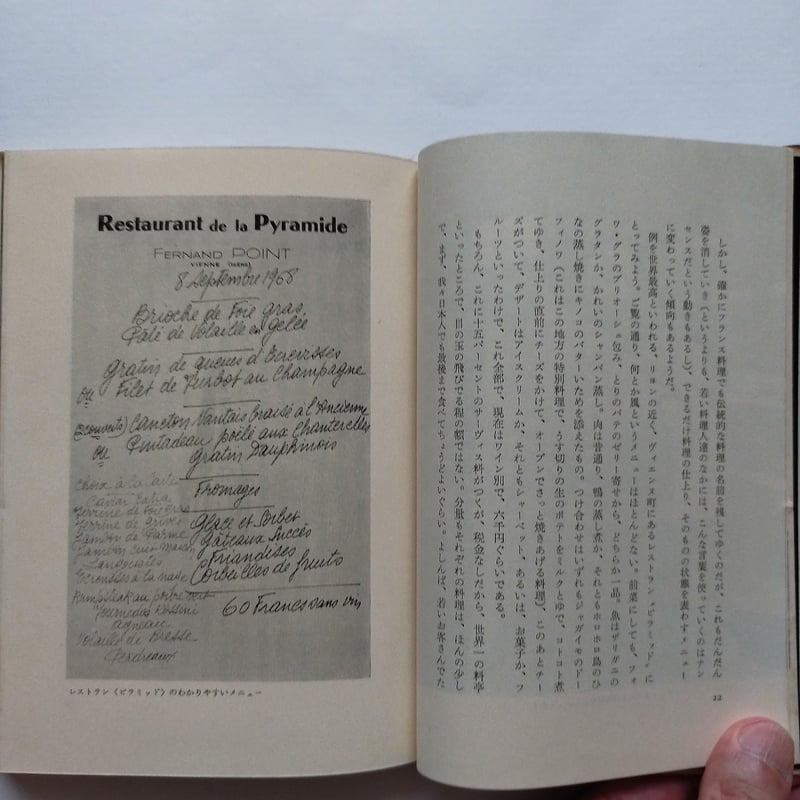 しかし、確かにフランス料理でも伝統的な料理の名前を残してゆくのだが、これもだんだん
姿を消していき（というよりも、若い料理人達のなかには、こんな言葉を使っていくのはナン
センスだという動きもあるし）、できるだけ料理の仕上り、そのものの状態を表わすメニュー
に変わっていく傾向もあるようだ。
例を世界最高といわれる、リヨンの近く、ヴィエンヌ町にあるレストラン〝ピラミッド〟に
とってみよう。ご覧の通り、何とか風というメニューはほとんどない。前菜にしても、フォ
ワ・グラのブリオーシュ包み、とりのパテのゼリー寄せから、どちらか一品。魚はザリガニの
グラタンか、かれいのシャンパン蒸し。肉は昔通り、鴨の蒸し煮か、それともホロホロ鳥のひ
なの蒸し焼きにキノコのバターいためを添えたもの。つけ合わせはいずれもジャガイモのドー
フィノワ（これはこの地方の特別料理で、うす切りの生のポテトをミルクとゆで、コトコト煮
てゆき、仕上りの直前にチーズをかけて、オーブンでさっと焼きあげる料理）、このあとチー
ズがついて、デザートはアイスクリームか、それともシャーベット、あるいは、お菓子か、フ
ルーツといったわけで、これ全部で、現在はワイン別で、六千円ぐらいである。
もちろん、これに十五パーセントのサーヴィス料がつくが、税金なしだから、世界一の料亭
といったところで、目の玉の飛びでる程の額ではない。分量もそれぞれの料理は、ほんの少し
で、まず、我々日本人でも最後まで食べてちょうどよいぐらい。よしんば、若いお客さんでた
22
Restaurant de la Pyramide
FERNAND POINT
VIENNE (ISÈRE)
8 Septembre 1968
Brioche de Foie gras,
Pâté de Volaille en gelée
Gratin de queues d'Ecrevisses
ou Filet de Turbot au Champagne
(2 couverts) Caneton Nantais braisé à l'Ancienne
ou Pintadeau poêlé aux Chanterelles
Gratin Dauphinois
Fromages
Glace et Sorbet
Gâteaux Succès
Friandises
Corbeilles de fruits
60 Francs sans vin
Choix à la Carte
Caviar Extra
Terrine de Foie Gras
Terrine de grives
Jambon de Parme
Jambon cru maison
Langoustes
Ecrevisses à la nage
Rumpsteak au poivre vert
Tournedos Rossini
agneau
Volaille de Bresse
Perdreaux
レストラン《ピラミッド》のわかりやすいメニュー